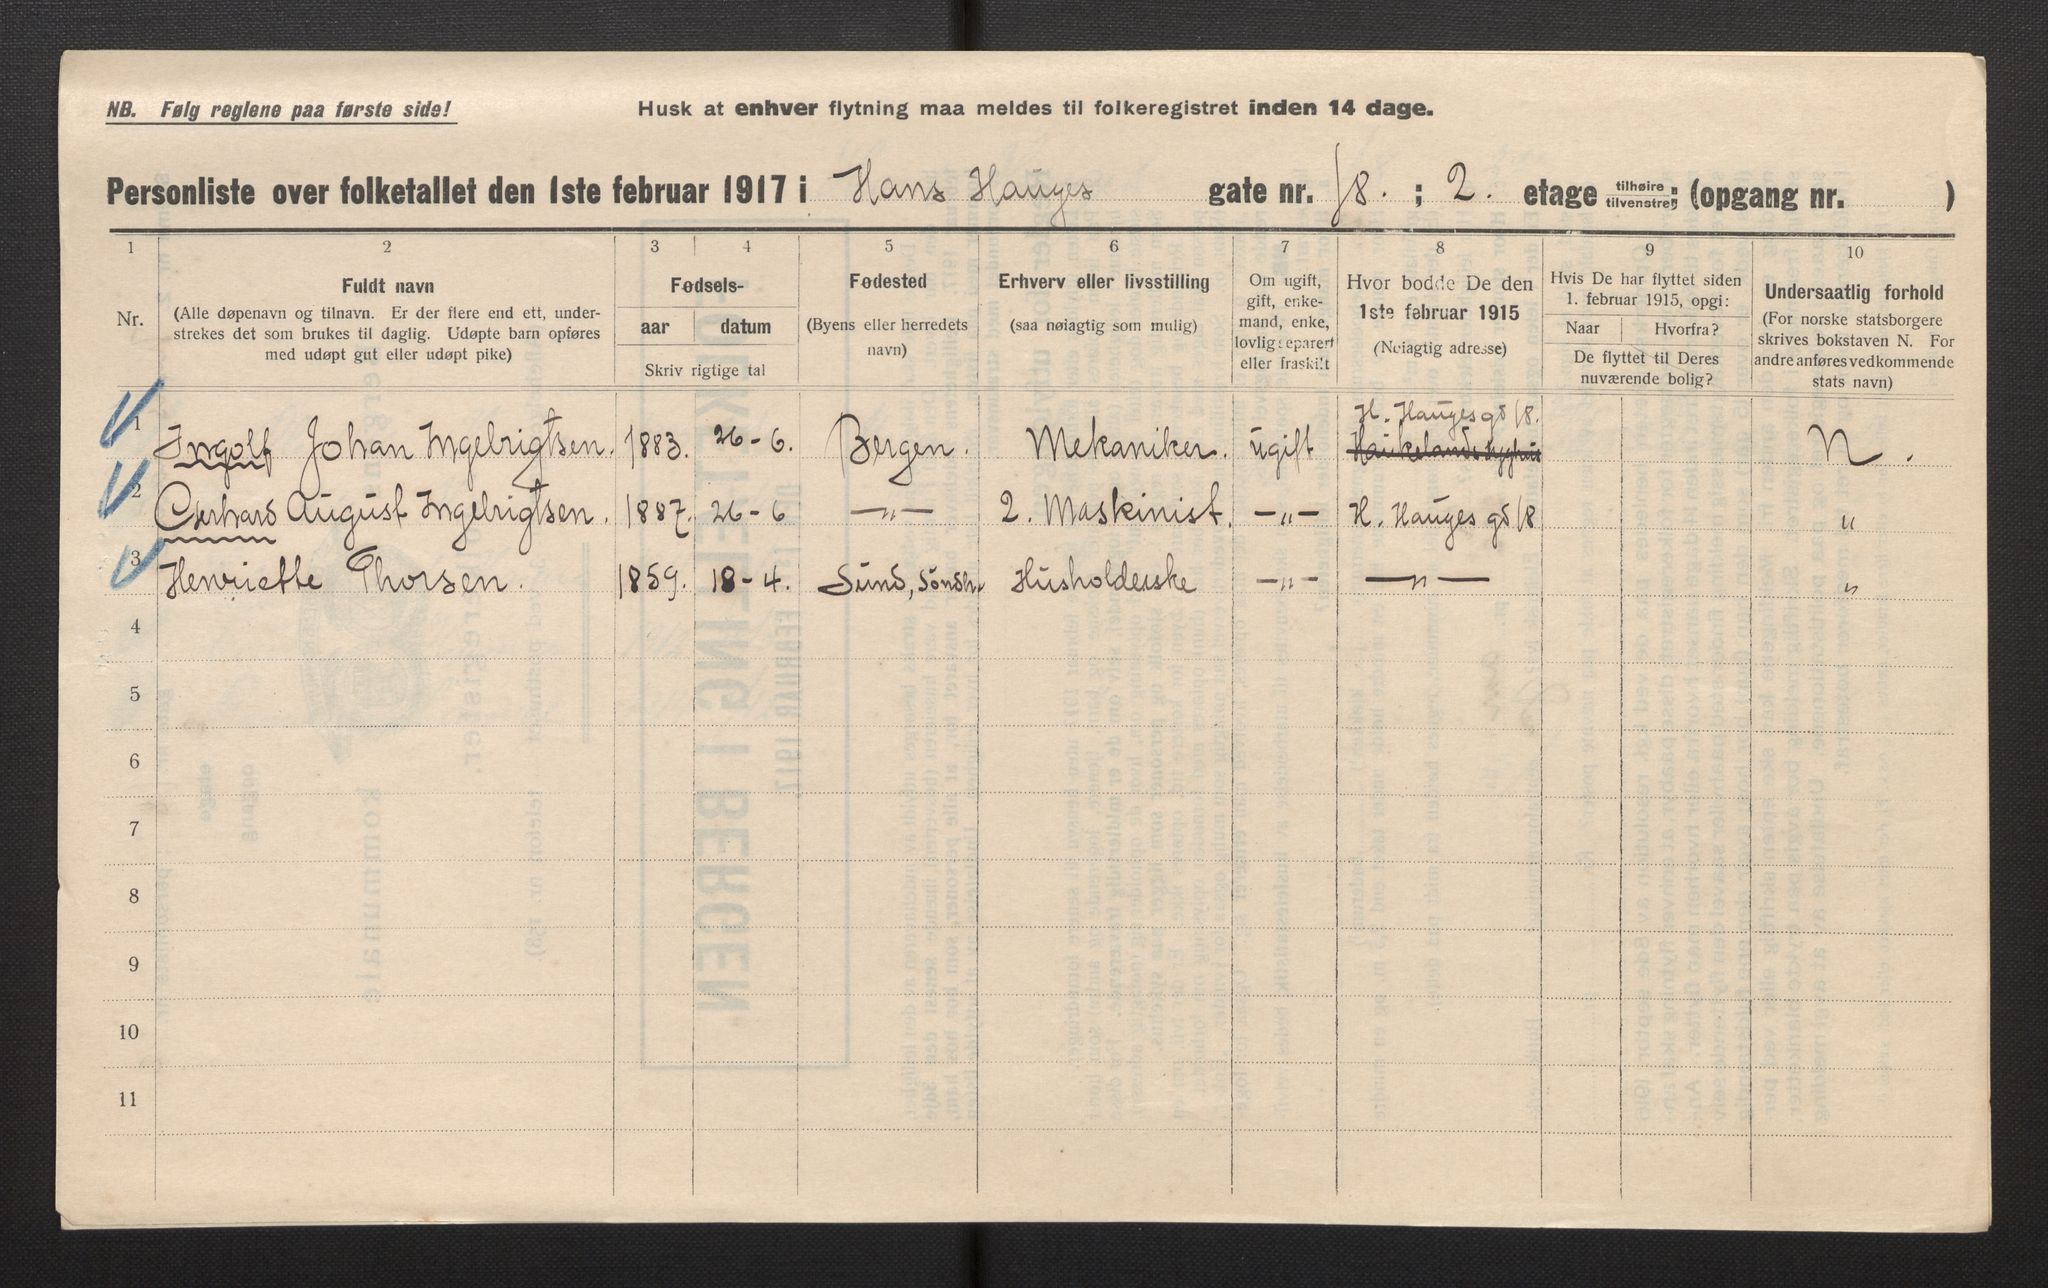 NB. Følg reglene paa første side! Husk at enhver flytning maa meldes til folkeregistret inden 14 dage.
Personliste over folketallet den 1ste februar 1917 i Hans Hauges gate nr. 18. ; 2. etage tilhøire tilvenstre : ; (opgang nr. )
1 2 3 4 5 6 7 8 9 10
Nr.
Fuldt navn
(Alle døpenavn og tilnavn. Er der flere end ett, under-
strekes det som brukes til daglig. Udøpte barn opføres
med udøpt gut eller udøpt pike)
Fødsels-
aar datum
Skriv rigtige tal
Fødested
(Byens eller herredets
navn)
Erhverv eller livsstilling
(saa nøiagtig som mulig)
Om ugift,
gift, enke-
mand, enke,
lovlig separert
eller fraskilt
Hvor bodde De den
1ste februar 1915
(Nøiagtig adresse)
Hvis De har flyttet siden
1. februar 1915, opgi:
Naar Hvorfra?
De flyttet til Deres
nuværende bolig?
Undersaatlig forhold
(For norske statsborgere
skrives bokstaven N. For
andre anføres vedkommende
stats navn)
H. Hauges gd 18.
1 Ingolf Johan Ingebrigtsen. 1883. 26-6. Bergen. Mekaniker. ugift N.
2 Gerhard August Ingebrigtsen. 1887. 26-6 —„— 2. Maskinist. —„— H. Hauges gd 18 „
3 Henriette Thorsen. 1859. 18-4. Sund, Søndh. Husholderske —„— —„— „
4
5
6
7
8
9
10
11